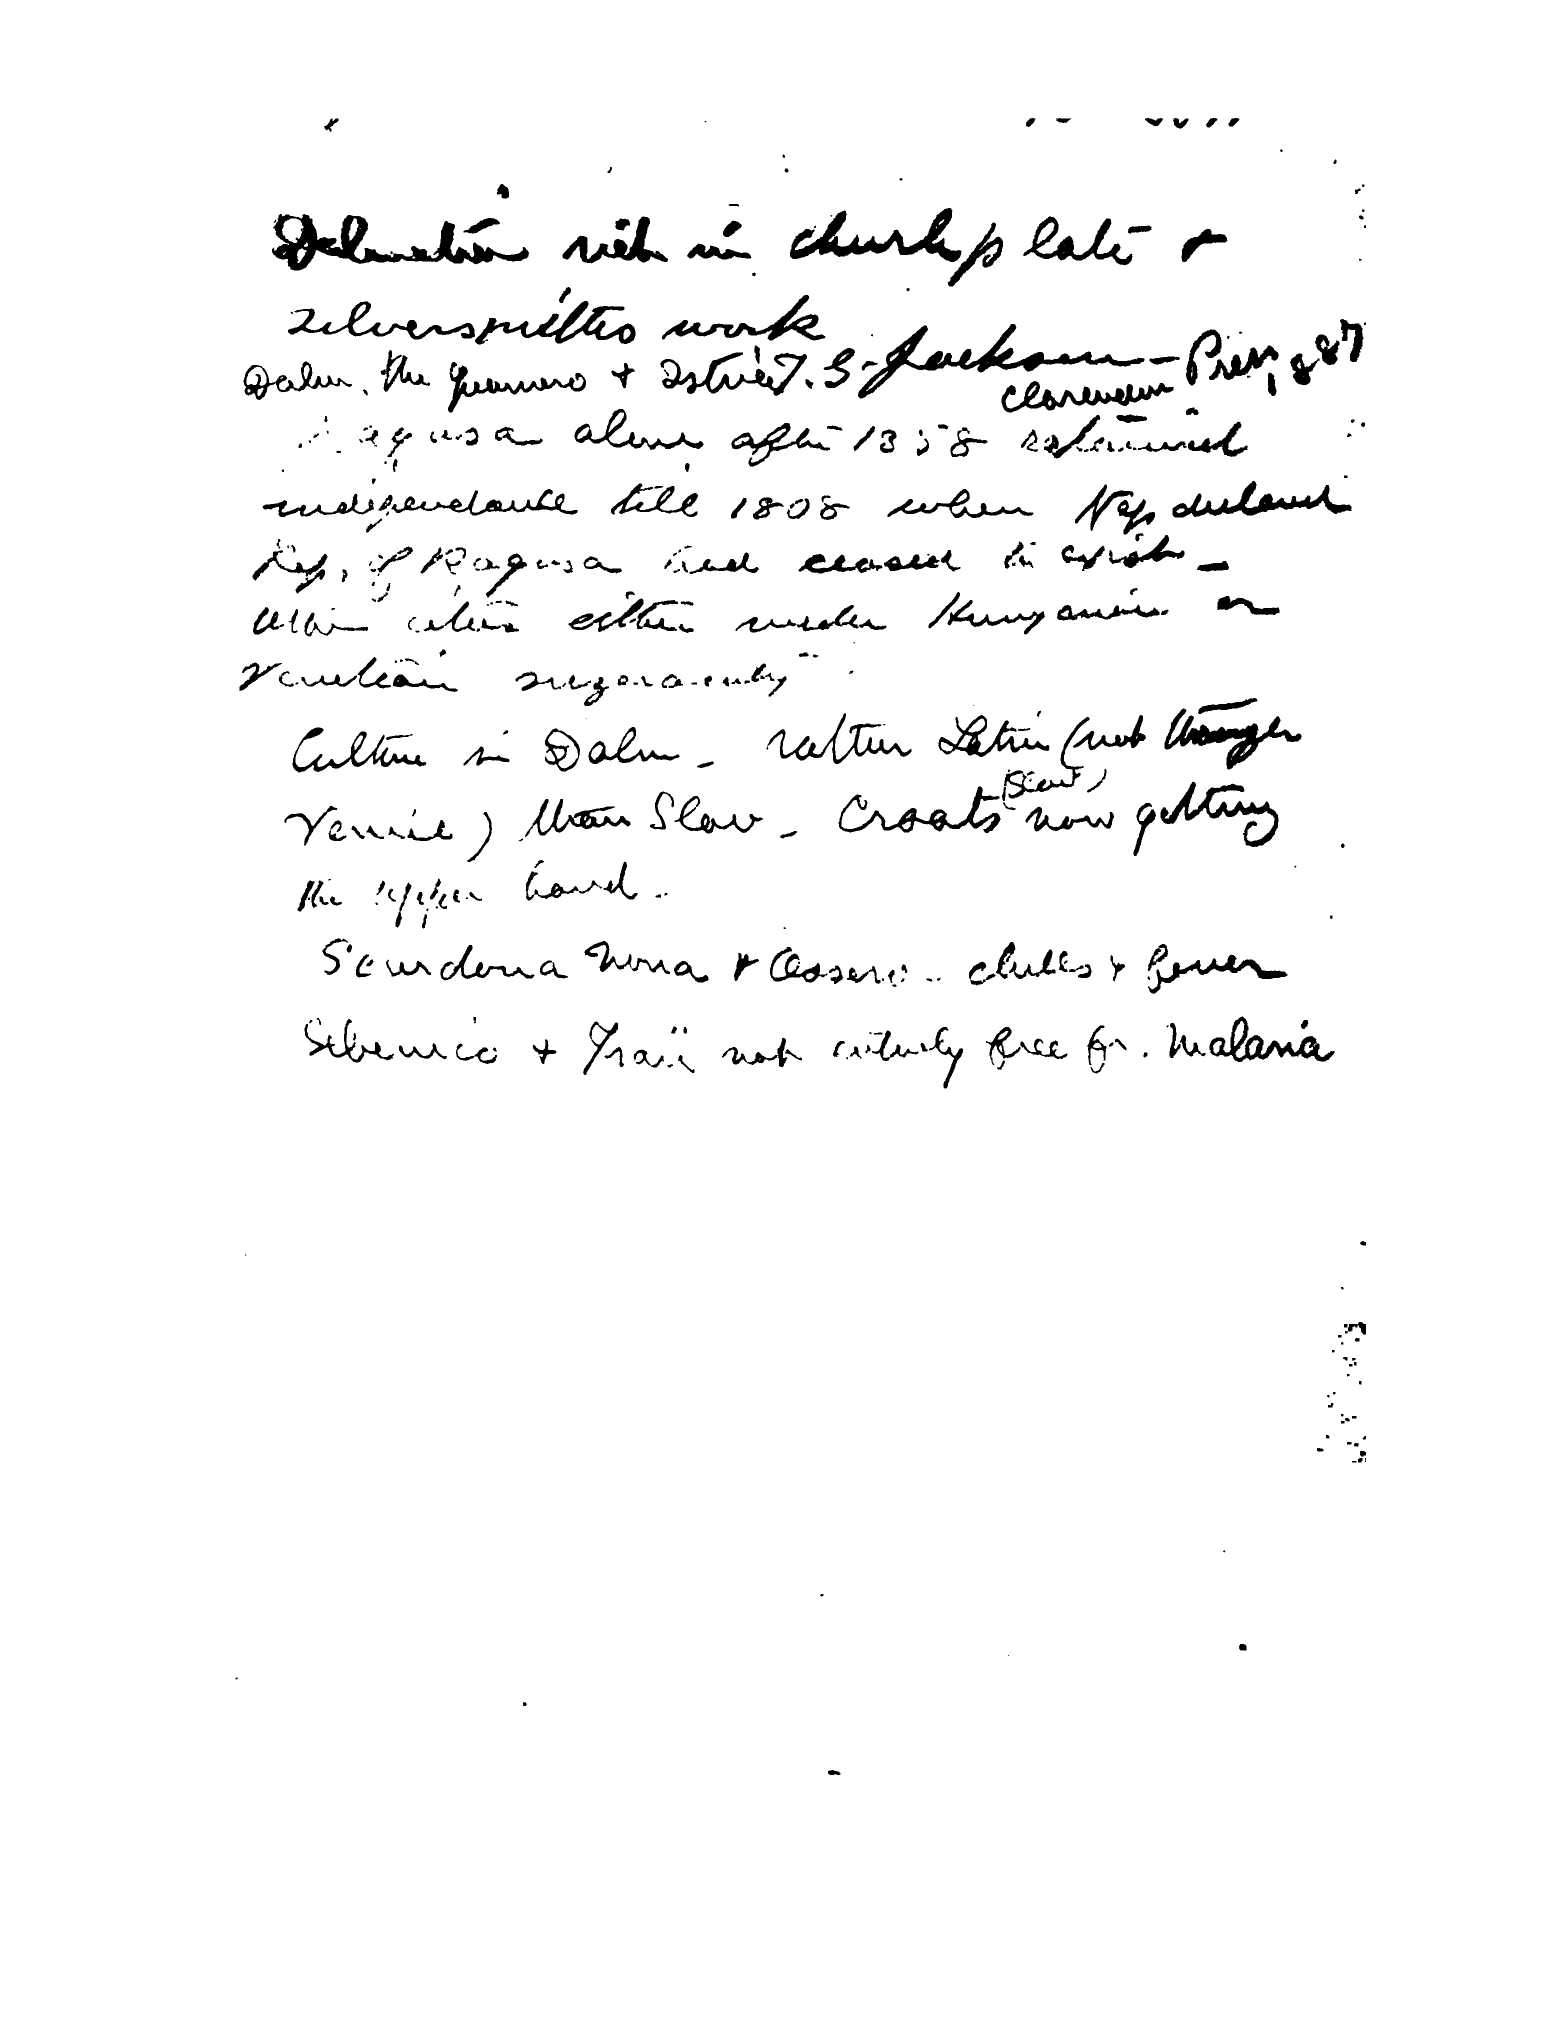 Dalmatia rich in church plate +
silversmiths work
Dalm. the Quarnero + Istria T. G. Jackson - Clarendon Press, 1887
Ragusa alone after 1358 retained
independance till 1808 when Nap declared
Rep. of Ragusa had ceased to exist -
Other cities either under Hungarian or
Venetian suzerainty
Culture in Dalm - rather Latin (not
Venice) than Slav - Croats (Slavs) now getting
the upper hand -
Scurdona Nona + Ossero - chills + fever
Sebenico + Traü not entirely free fr. Malaria